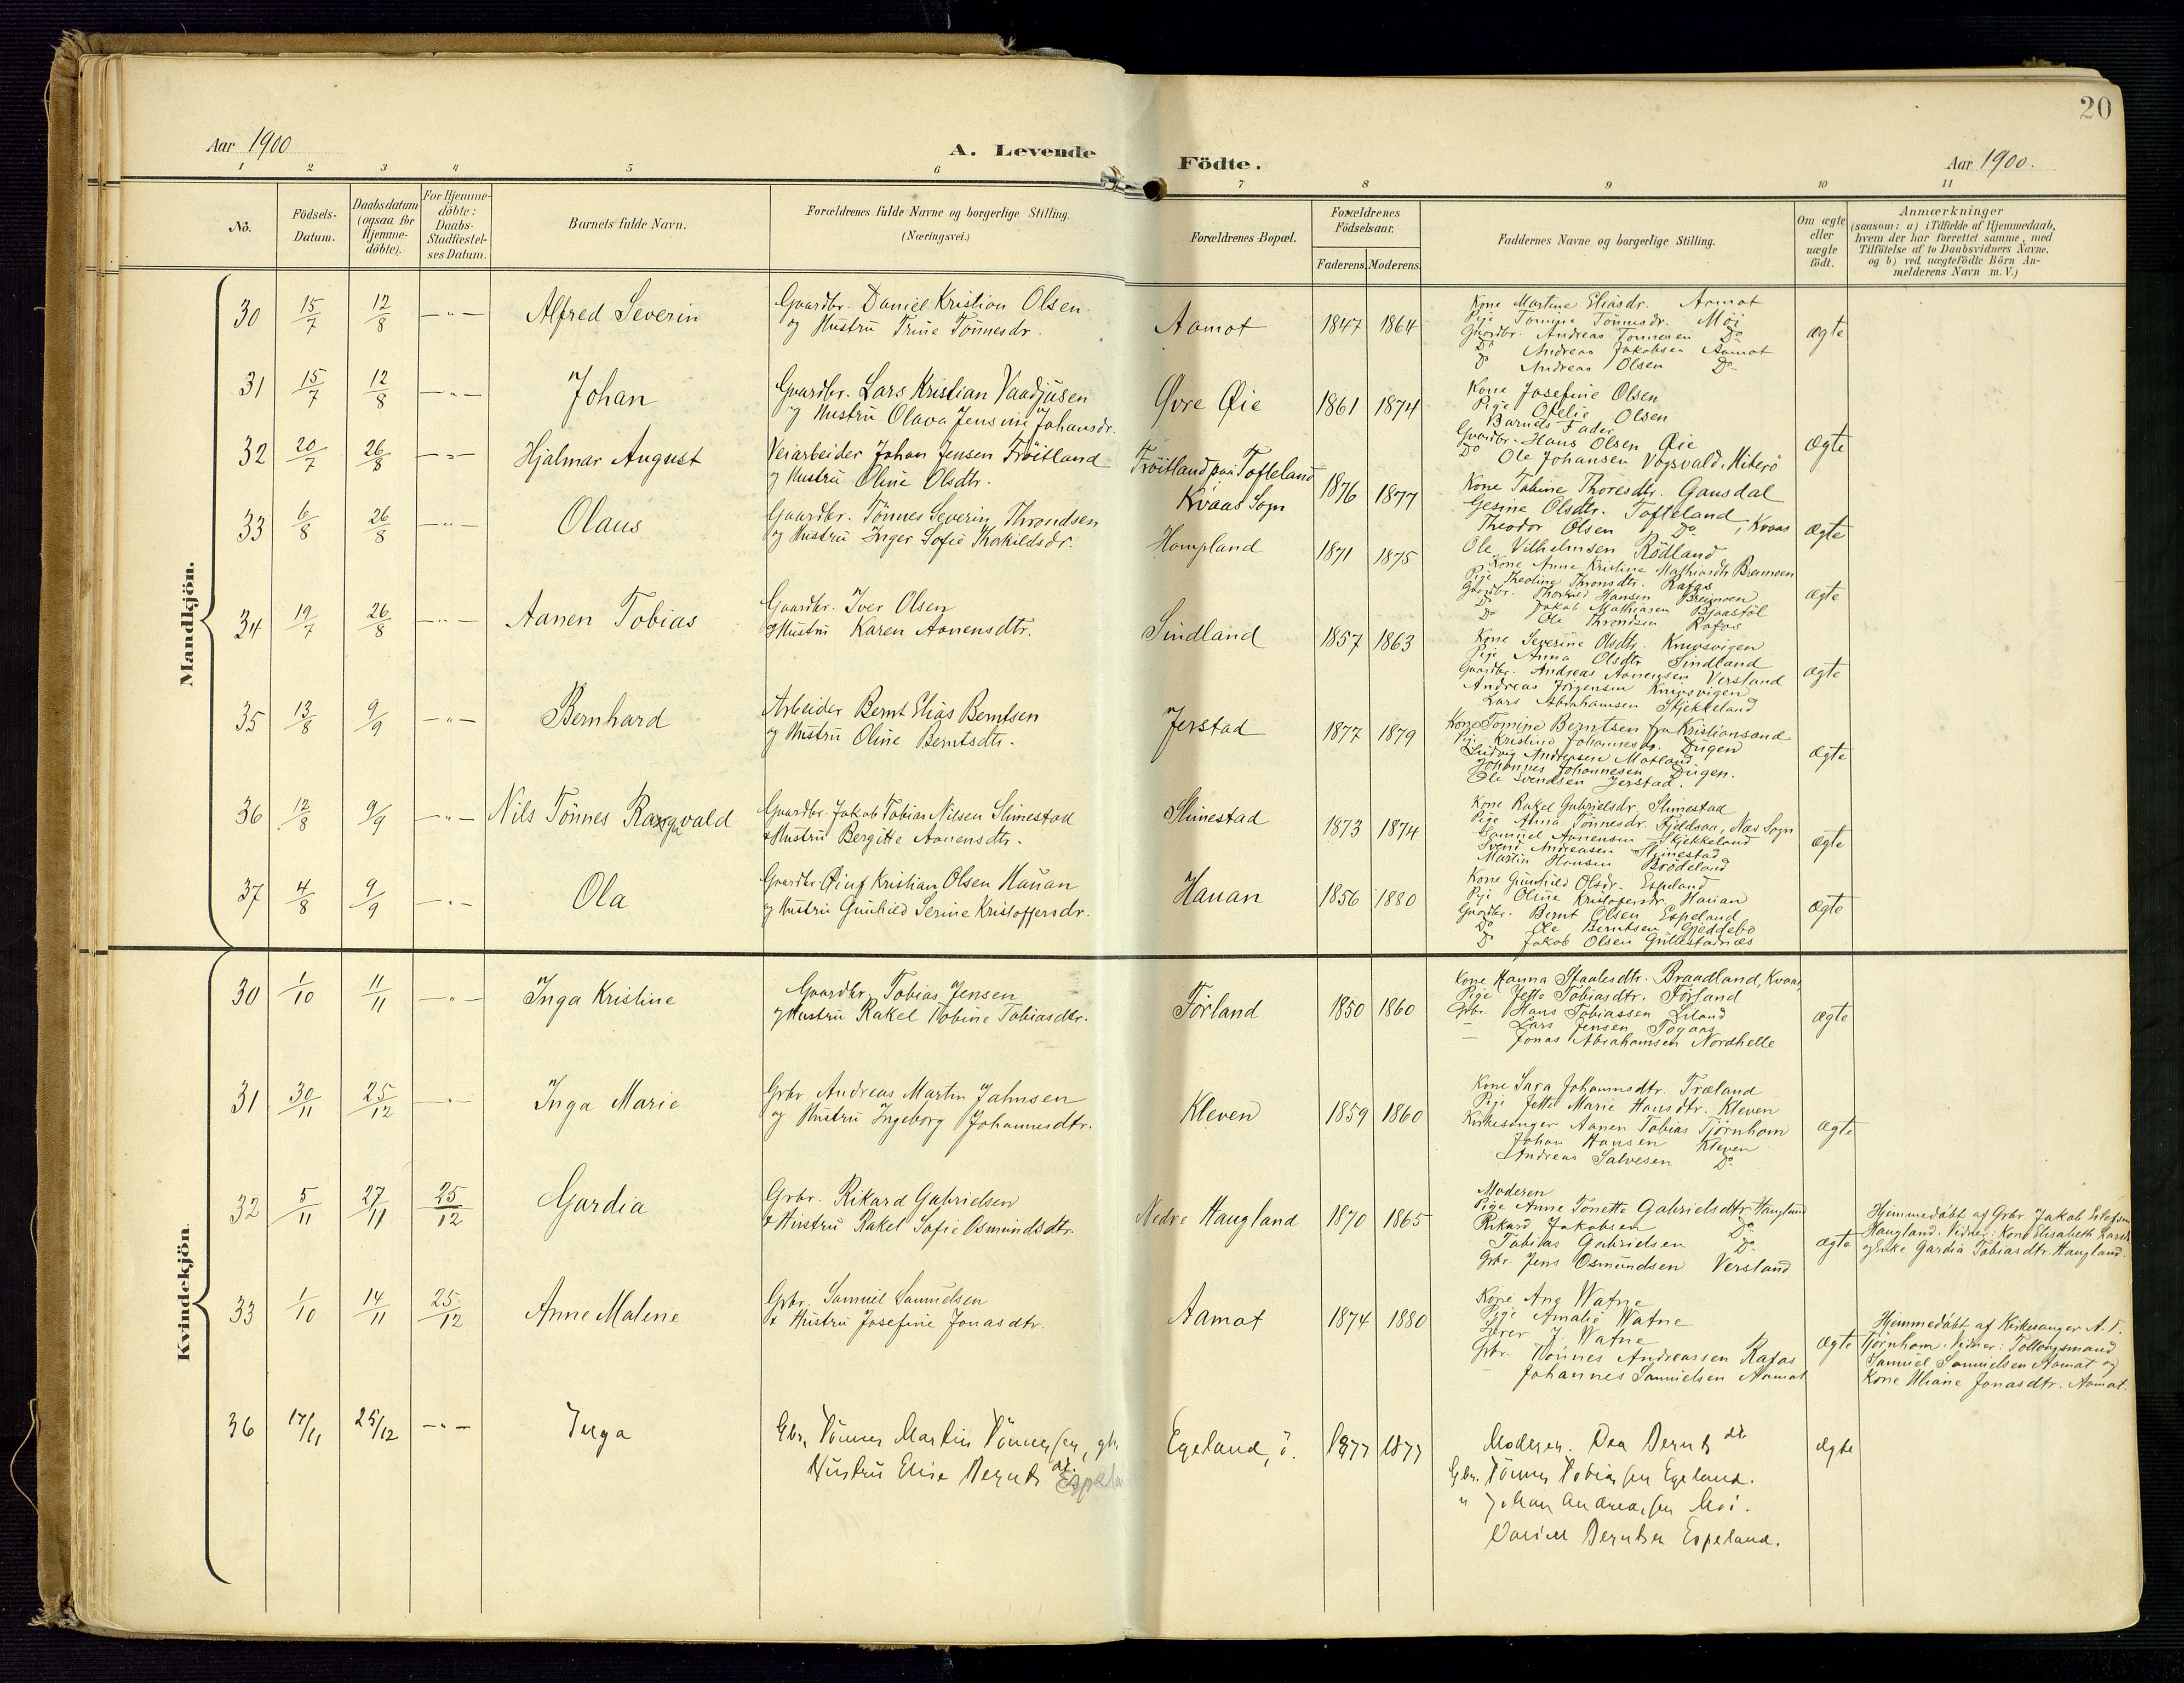 20
Aar 1900
A. Levende Födte.
Aar 1900.
1 2 3 4 5 6 7 8 9 10 11
No.
Födsels-Datum.
Daabsdatum (ogsaa for Hjemme-döbte).
For Hjemme-döbte: Daabs-Stadfæstel-ses Datum.
Barnets fulde Navn.
Forældrenes fulde Navne og borgerlige Stilling.
(Næringsvei.)
Forældrenes Bopæl.
Forældrenes Födselsaar.
Faderens. Moderens.
Faddernes Navne og borgerlige Stilling.
Om ægte eller uægte födt.
Anmærkninger
(saasom: a) i Tilfælde af Hjemmedaab, hvem der har forrettet samme, med Tilföielse af to Daabsvidners Navne, og b) ved uægtefödte Börn Anmelderens Navn m. V.)
Mandkjön.
30 15/7 12/8 — " — Alfred Severin
Gaardbr. Daniel Kristian Olsen
og Hustru Trine Tönnesdr.
Aamot 1847 1864
Kone Martine Eliasdr. Aamot
Pige Tomine Tönnesdr. Möi
Gaardbr. Andreas Tonnesen Do
Do Andreas Jakobsen Aamot
Do Andreas Olsen Do
ægte
31 15/7 12/8 — " — Johan
Gaardbr. Lars Kristian Vaadjusen
og Hustru Olava Jensine Johansdr.
Øvre Øie 1861 1874
Kone Josefine Olsen
Pige Ofelie Olsen
Barnets Fader
Gaardbr. Hans Olsen Øie
Do Ole Johansen Vogsvald, Hiterö
ægte
32 20/7 26/8 — " — Hjalmar August
Veiarbeider Johan Jensen Tröitland
og Hustru Oline Olsdtr.
Tröitland paa Tofteland
Kvaas Sogn
1876 1877
Kone Tobine Thoresdtr. Gausdal
Gesine Olsdtr. Tofteland, Kvaas
Theodor Olsen Do
Ole Vilhelmsen Rödland
ægte
33 6/8 26/8 — " — Olaus
Gaardbr. Tönnes Severin Throndsen
og Hustru Inger Sofie Thorkildsdr.
Hompland 1871 1875
Kone Anna Kristine Mathiasdtr. Breimoen
Pige Theoline Thronsdtr. Rafos
Gaardbr. Thorkild Hansen Breimoen
Do Jakob Mathiasen Bjaastöl
Do Ole Throndsen Rafos
ægte
34 19/7 26/8 — " — Aanen Tobias
Gaardbr. Iver Olsen
og Hustru Karen Aanensdtr.
Sindland 1857 1863
Kone Severine Olsdtr. Knivsvigen
Pige Anna Olsdtr. Sindland
Gaardbr. Andreas Aanensen Versland
Andreas Jörgensen Knivsvigen
Lars Abrahamsen Skjekkeland
ægte
35 13/8 9/9 — " — Bernhard
Arbeider Bernt Elias Berntsen
og Hustru Oline Berntsdtr.
Jerstad 1877 1879
Kone Tomine Berntsen fra Kristiansand
Pige Kristine Johannesdr. Dugen
Ludvig Andersen Motland
Johannes Johannesen Dugen.
Ole Svendsen Jerstad.
ægte
36 12/8 9/9 — " — Nils Tönnes Ragnvald
Gaardbr. Jakob Tobias Nilsen Slimestad
og Hustru Bergitte Aanensdtr.
Slimestad 1873 1874
Kone Rakel Gabrielsdr. Slimestad
Pige Anna Tönnesdr. Fjeldsaa, Næs Sogn
Samuel Aanensen Skjekkeland
Svend Andreasen Slimestad
Martin Hansen Brödeland
ægte
37 4/8 9/9 — " — Ola
Gaardbr. Øiuf Kristian Olsen Hauan
og Hustru Gunhild Serine Kristoffersdr.
Hauan 1856 1880
Kone Gunhild Olsdr. Espeland
Pige Oline Kristofersdr. Hauan
Gaardbr. Bernt Olsen Espeland
Do Ole Berntsen Gjeddebo
Do Jakob Olsen Gullestadnæs
ægte
Kvindekjön
30 1/10 11/11 — " — Inga Kristine
Gaardbr. Tobias Jensen
og Hustru Rakel Tobine Tobiasdtr.
Förland 1850 1860
Kone Hanna Staalesdtr. Braadland, Kvaas
Pige Jette Tobiasdtr. Förland
Grbr. Hans Tobiassen Liland
— Lars Jensen Fogaas
— Jonas Abrahamsen Nordhelle
ægte
31 30/11 25/12 — " — Inga Marie
Grbr Andreas Martin Jahnsen
og Hustru Ingeborg Johannesdtr.
Kleven 1859 1860
Kone Sara Johannsdtr. Træland
Pige Jette Marie Hansdtr. Kleven
Kirkesanger Aanen Tobias Tjörnhom
Johan Hansen Kleven
Andreas Salvesen Do
ægte
32 5/11 27/11 25/12 Gardia
Grbr. Rikard Gabrielsen
& Hustru Rakel Sofie Osmundsdtr.
Nedre Haugland 1870 1865
Moderen
Pige Anne Tonette Gabrielsdtr Haugland
Rikard Jakobsen Do
Tobias Gabrielsen Do
Grbr. Jens Osmundsen Versland
ægte
Hjemmedöbt af Grbr Jakob
Haugland. Vidner: Kone Elisabeth Larsdr
og Enke Gardia Tobiasdtr. Haugland.
33 1/10 14/11 25/12 Anne Malene
Grbr. Samuel Samuelsen
& Hustru Josefine Jonasdtr.
Aamot 1874 1880
Kone Ang Watne
Pige Amalie Watne
Lærer J. Watne
Grbr. Tönnes Andreassen Rafos
— Johannes Samuelsen Aamot
ægte
Hjemmedöbt af Kirkesanger A. T.
Tjörnhom. Vidner: Follougsmand
Samuel Samuelsen Aamot og
Kone Uliane Jonasdtr. Aamot.
36 17/11 25/12 — " — Inga
Gbr, Tönnes Martin Tönnessen, gbr.
Hustru Elise Berntsdt.
Egeland, ö. 1877 1877
Moderen. Dea Berntsdt
Gbr. Tönnes Tobiassen Egeland.
" Johan Andreassen Moi.
Daniel Berntsen Espeland.
ægte